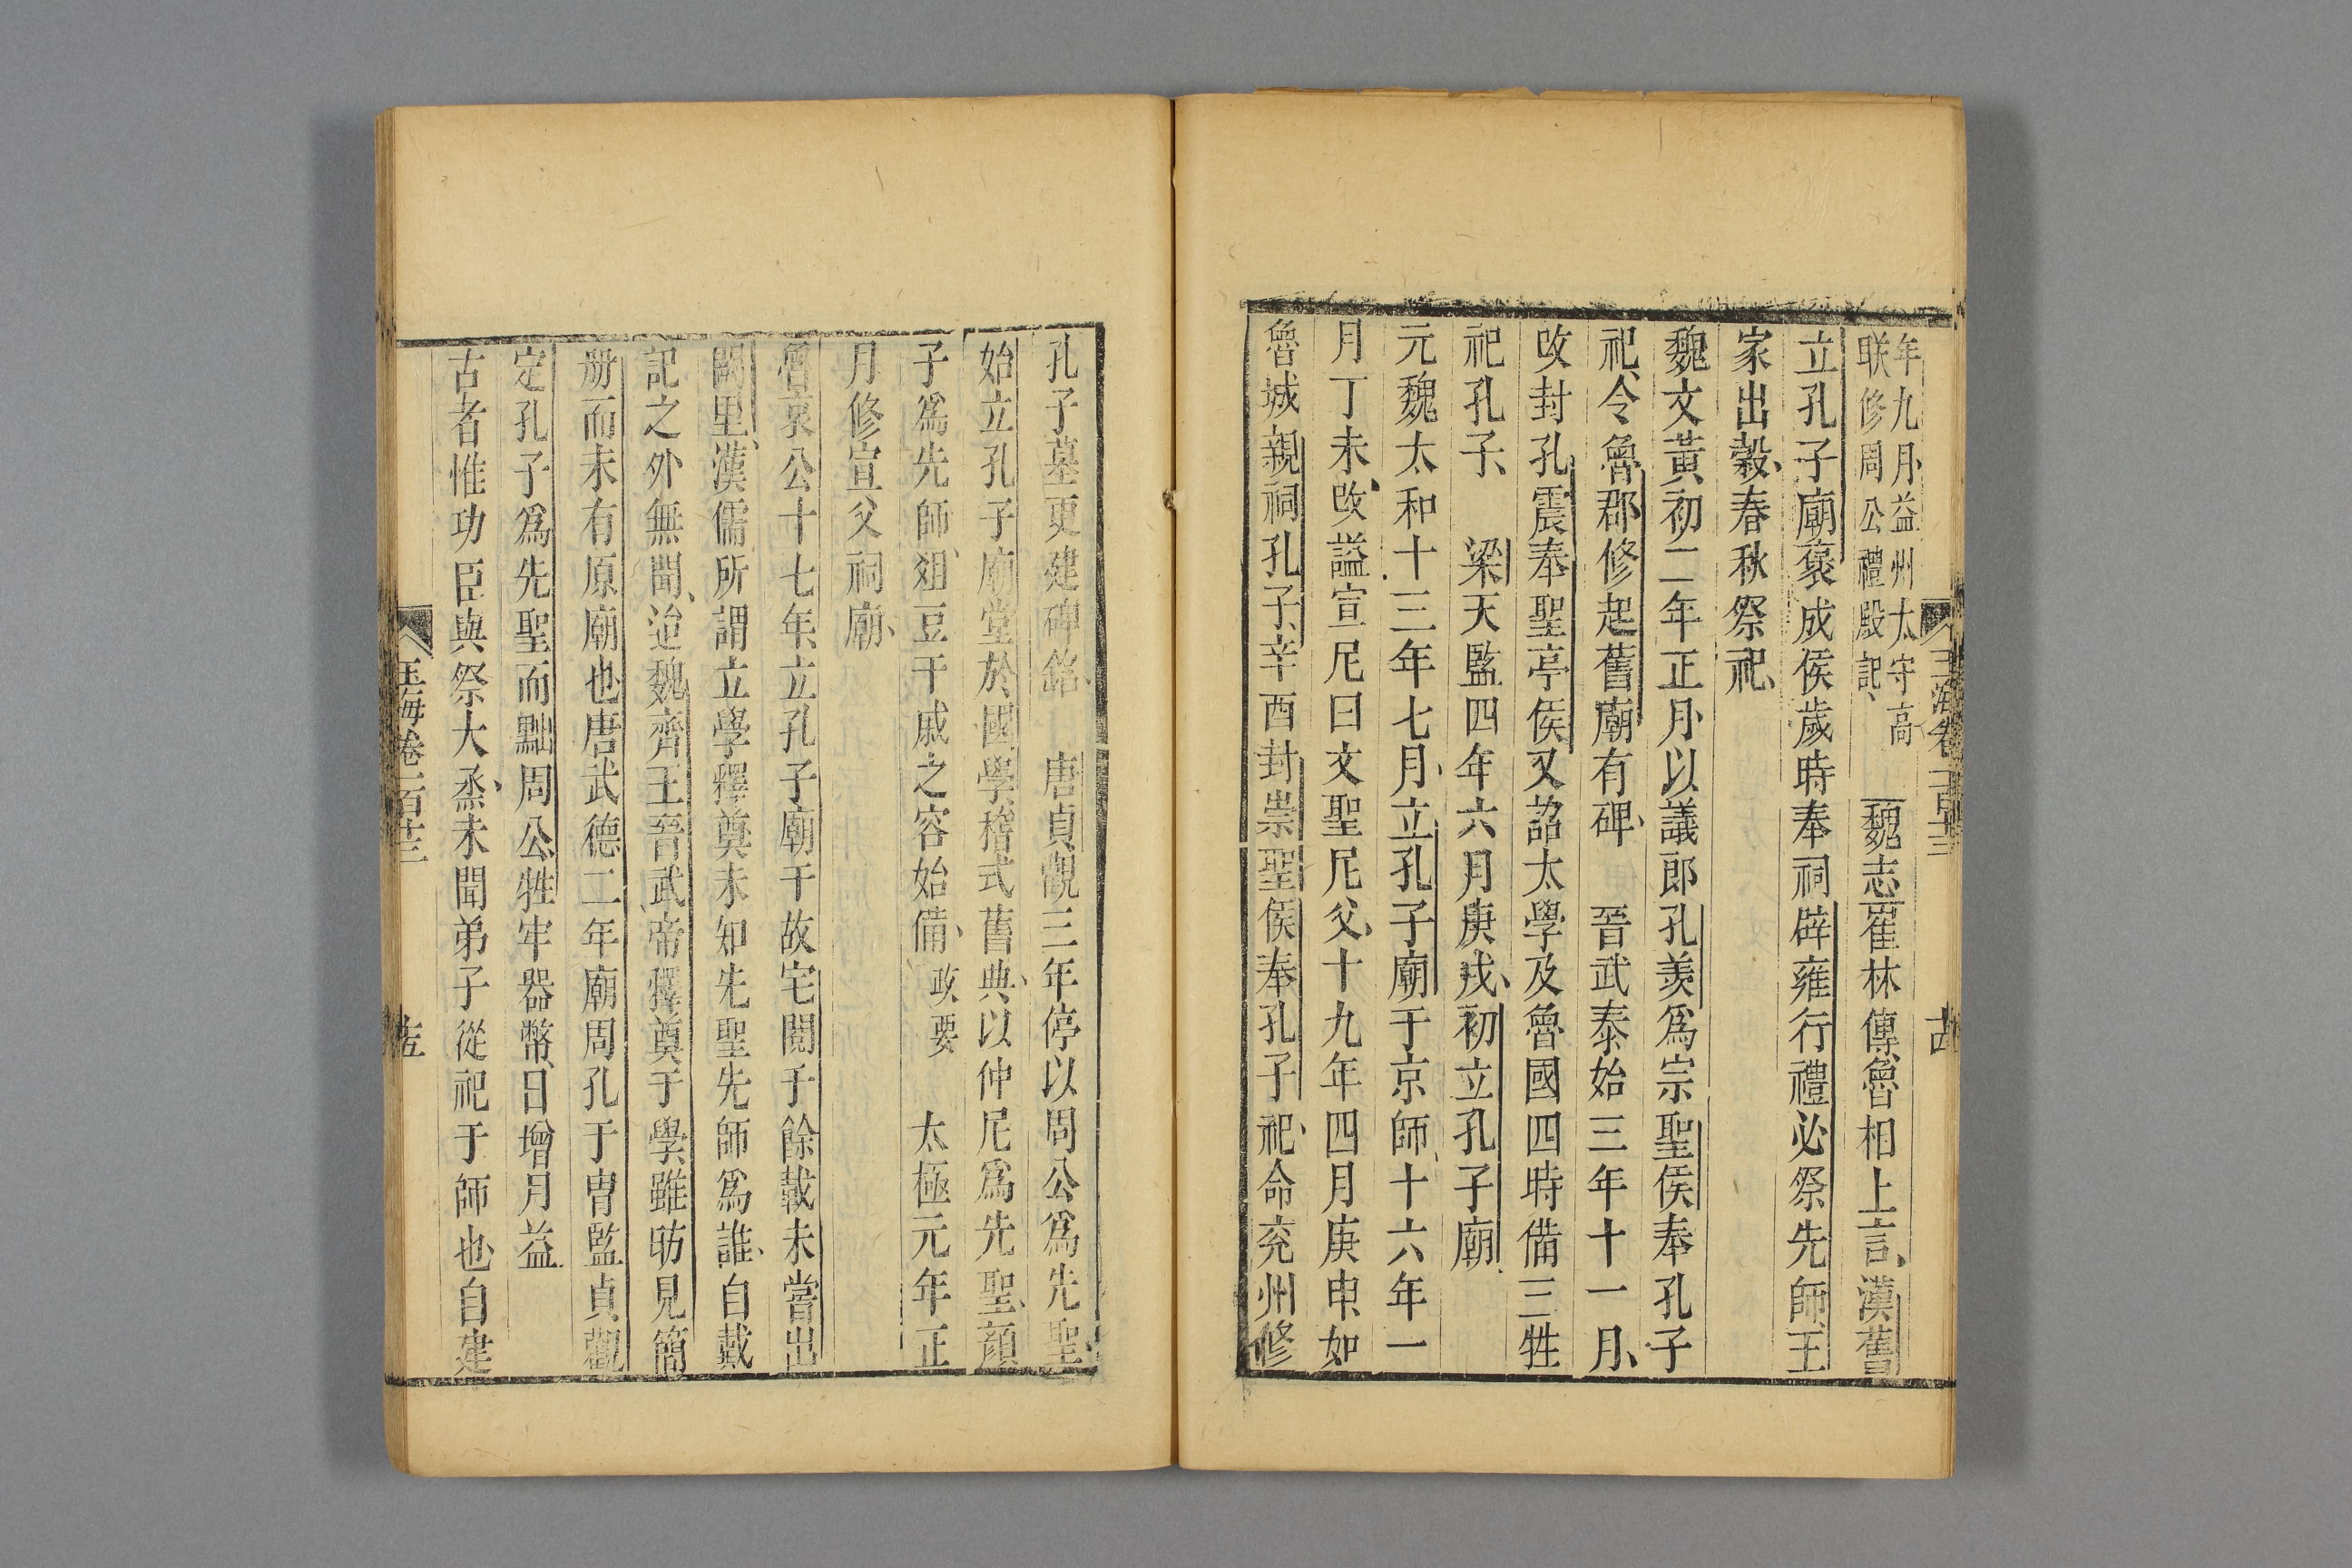 年九月益州太守高
䀻修周公禮殿記
魏志崔林傳魯相上言漢舊
立孔子廟褒成侯歲時奉祠辟雍行禮必祭先師王
家出穀春秋祭祀
魏文黃初二年正月以議郎孔羨爲宗聖侯奉孔子
祀令魯郡修起舊廟有碑 晉武泰始三年十一月
改封孔震奉聖亭侯又詔太學及魯國四時備三牲
祀孔子 梁天監四年六月庚戌初立孔子廟
元魏太和十三年七月立孔子廟于京師十六年一
月丁未改謚宣尼曰文聖尼父十九年四月庚申如
魯城親祠孔子辛酉封崇聖侯奉孔子祀命兖州修
孔子墓更建碑銘 唐貞觀三年停以周公爲先聖
始立孔子廟堂於國學稽式舊典以仲尼爲先聖顔
子爲先師俎豆干戚之容始備政要 太極元年正
月修宣父祠廟
魯哀公十七年立孔子廟于故宅閱千餘載未嘗出
闕里漢儒所謂立學釋奠未知先聖先師爲誰自戴
記之外無聞迨魏齊王晉武帝釋奠于學雖昉見簡
册而未有原廟也唐武德二年廟周孔于胄監貞觀
定孔子爲先聖而黜周公牲牢器幣日增月益
古者惟功臣與祭大烝未聞弟子從祀于師也自建
玉海卷一百十三